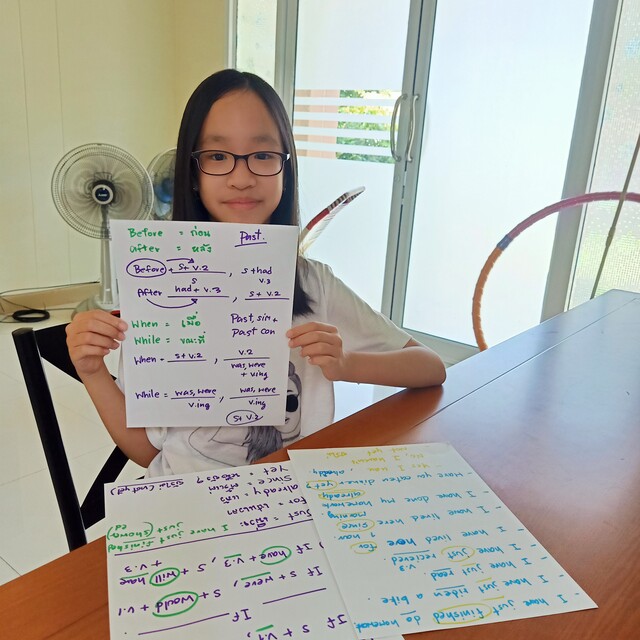 Before = ก่อน Past.
After = หลัง
Before + S+ V.2 , S + had V.3
After S had + V.3 , S + V.2
When = เมื่อ Past, sim +
While = ขณะที่ Past con
When + S + V.2 , V.2
was, were + Ving
While + was, were V.ing , was, were V.ing
S+ V.2
If S + V.1,
If
If S + were, S + would + V.1
If have + V.3, S + will have + V.3
I have just finished
Just =
already = แล้ว
Since = ตั้งแต่
yet =
I have just finished do homework
I have just riden a bike.
I have just read
I have just recieved V.3
I have lived here for 1 hour.
I have lived here since morning
I have done my homework already
Have you eaten dinner yet?
Yes I have already
No, I haven't